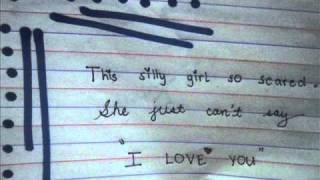 This silly girl so scared.
She just can't say
"I LOVE YOU"